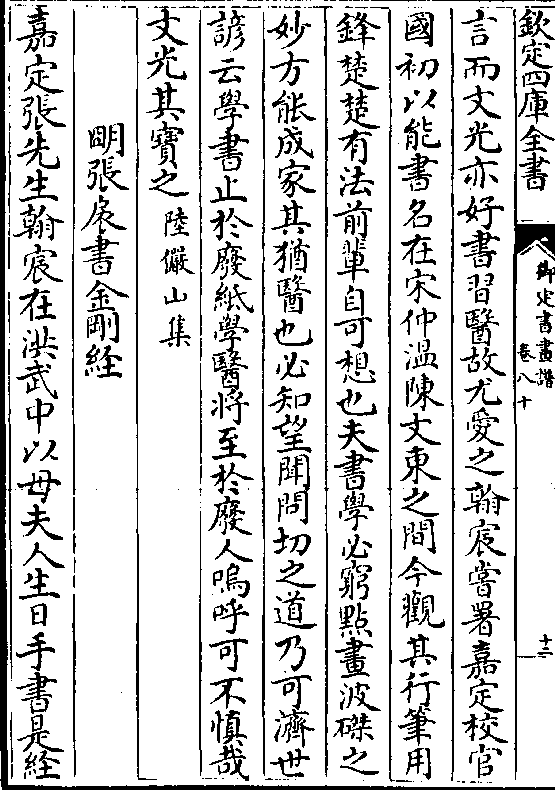 欽定四庫全書
御定書畫譜
卷八十
十二
言而文光亦好書習醫故尤愛之翰宸嘗署嘉定校官
國初以能書名在宋仲温陳文東之間今觀其行筆用
鋒楚楚有法前輩自可想也夫書學必窮點畫波磔之
妙方能成家其猶醫也必知望聞問切之道乃可濟世
諺云學書止於廢紙學醫將至於廢人嗚呼可不慎哉
文光其寳之陸儼山集
明張宸書金剛經
嘉定張先生翰宸在洪武中以母夫人生日手書是經